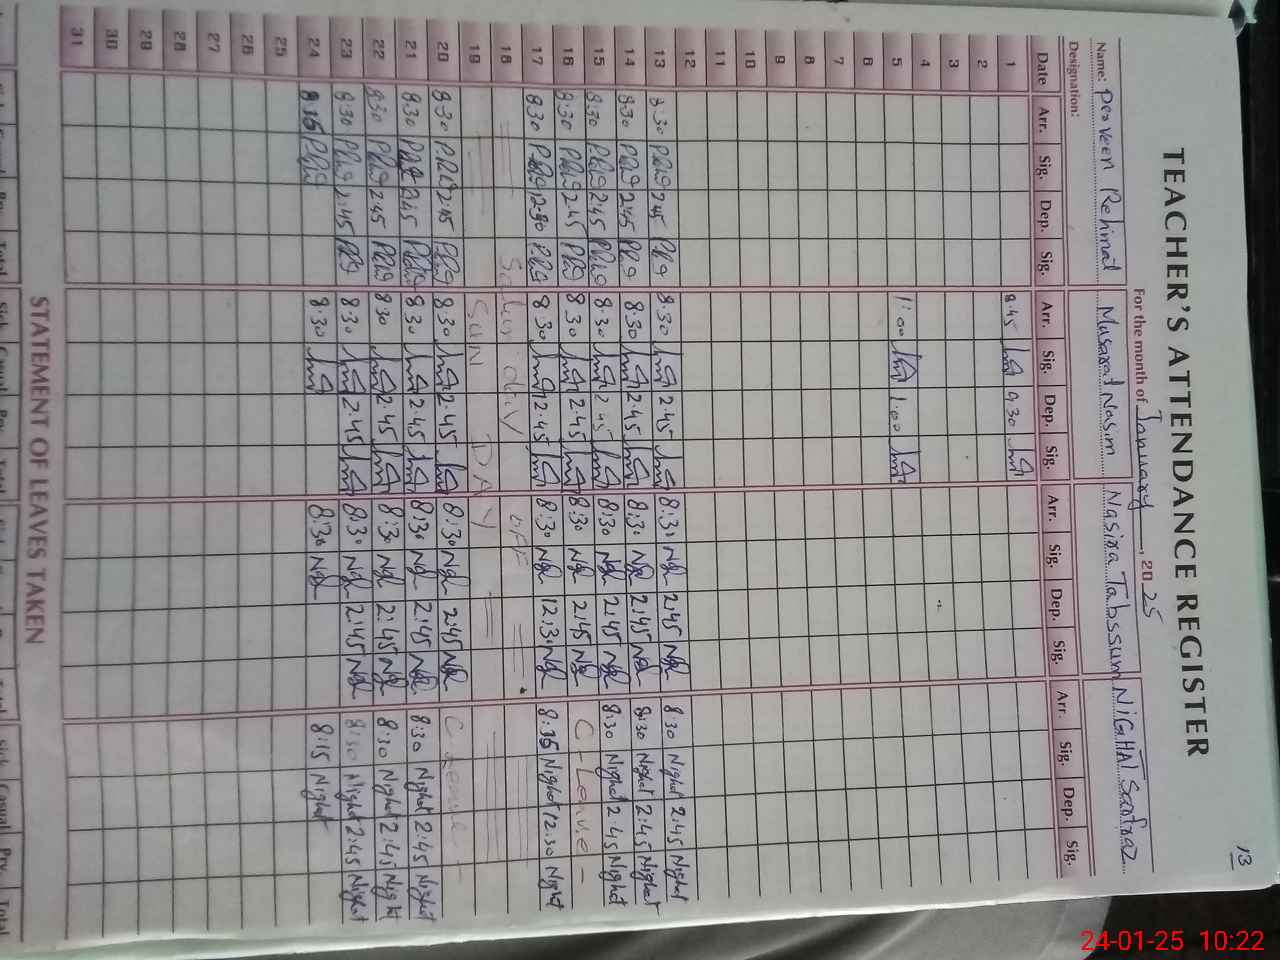 13
TEACHER'S ATTENDANCE REGISTER
For the month of January, 2025
Name: Perveen Rehmat Musarat Nasim Nasira Tabssum NiGHAT Sarfraz
Designation:
Date Arr. Sig. Dep. Sig. Arr. Sig. Dep. Sig. Arr. Sig. Dep. Sig. Arr. Sig. Dep. Sig.
1 8:45 9:30
2
3
4
5 1:00 1:00
6
7
8
9
10
11
12
13 8:30 2:45 8:30 2:45 8:30 2:45 8:30 Nighat 2:45 Nighat
14 8:30 2:45 8:30 2:45 8:30 2:45 8:30 Nighat 2:45 Nighat
15 8:30 2:45 8:30 2:45 8:30 2:45 8:30 Nighat 2:45 Nighat
16 8:30 2:45 8:30 2:45 8:30 2:45 C - Leave -
17 8:30 12:30 8:30 2:45 8:30 12:30 8:35 Nighat 12:30 Nighat
18 OFF
19 SUN DAY
20 8:30 2:45 8:30 2:45 8:30 2:45 C Leave -
21 8:30 2:45 8:30 2:45 8:30 2:45 8:30 Nighat 2:45 Nighat
22 8:30 2:45 8:30 2:45 8:30 2:45 8:30 Nighat 2:45 Nighat
23 8:30 2:45 8:30 2:45 8:30 2:45 8:30 Nighat 2:45 Nighat
24 8:15 8:30 8:30 8:15 Nighat
25
26
27
28
29
30
31
STATEMENT OF LEAVES TAKEN
24-01-25 10:22